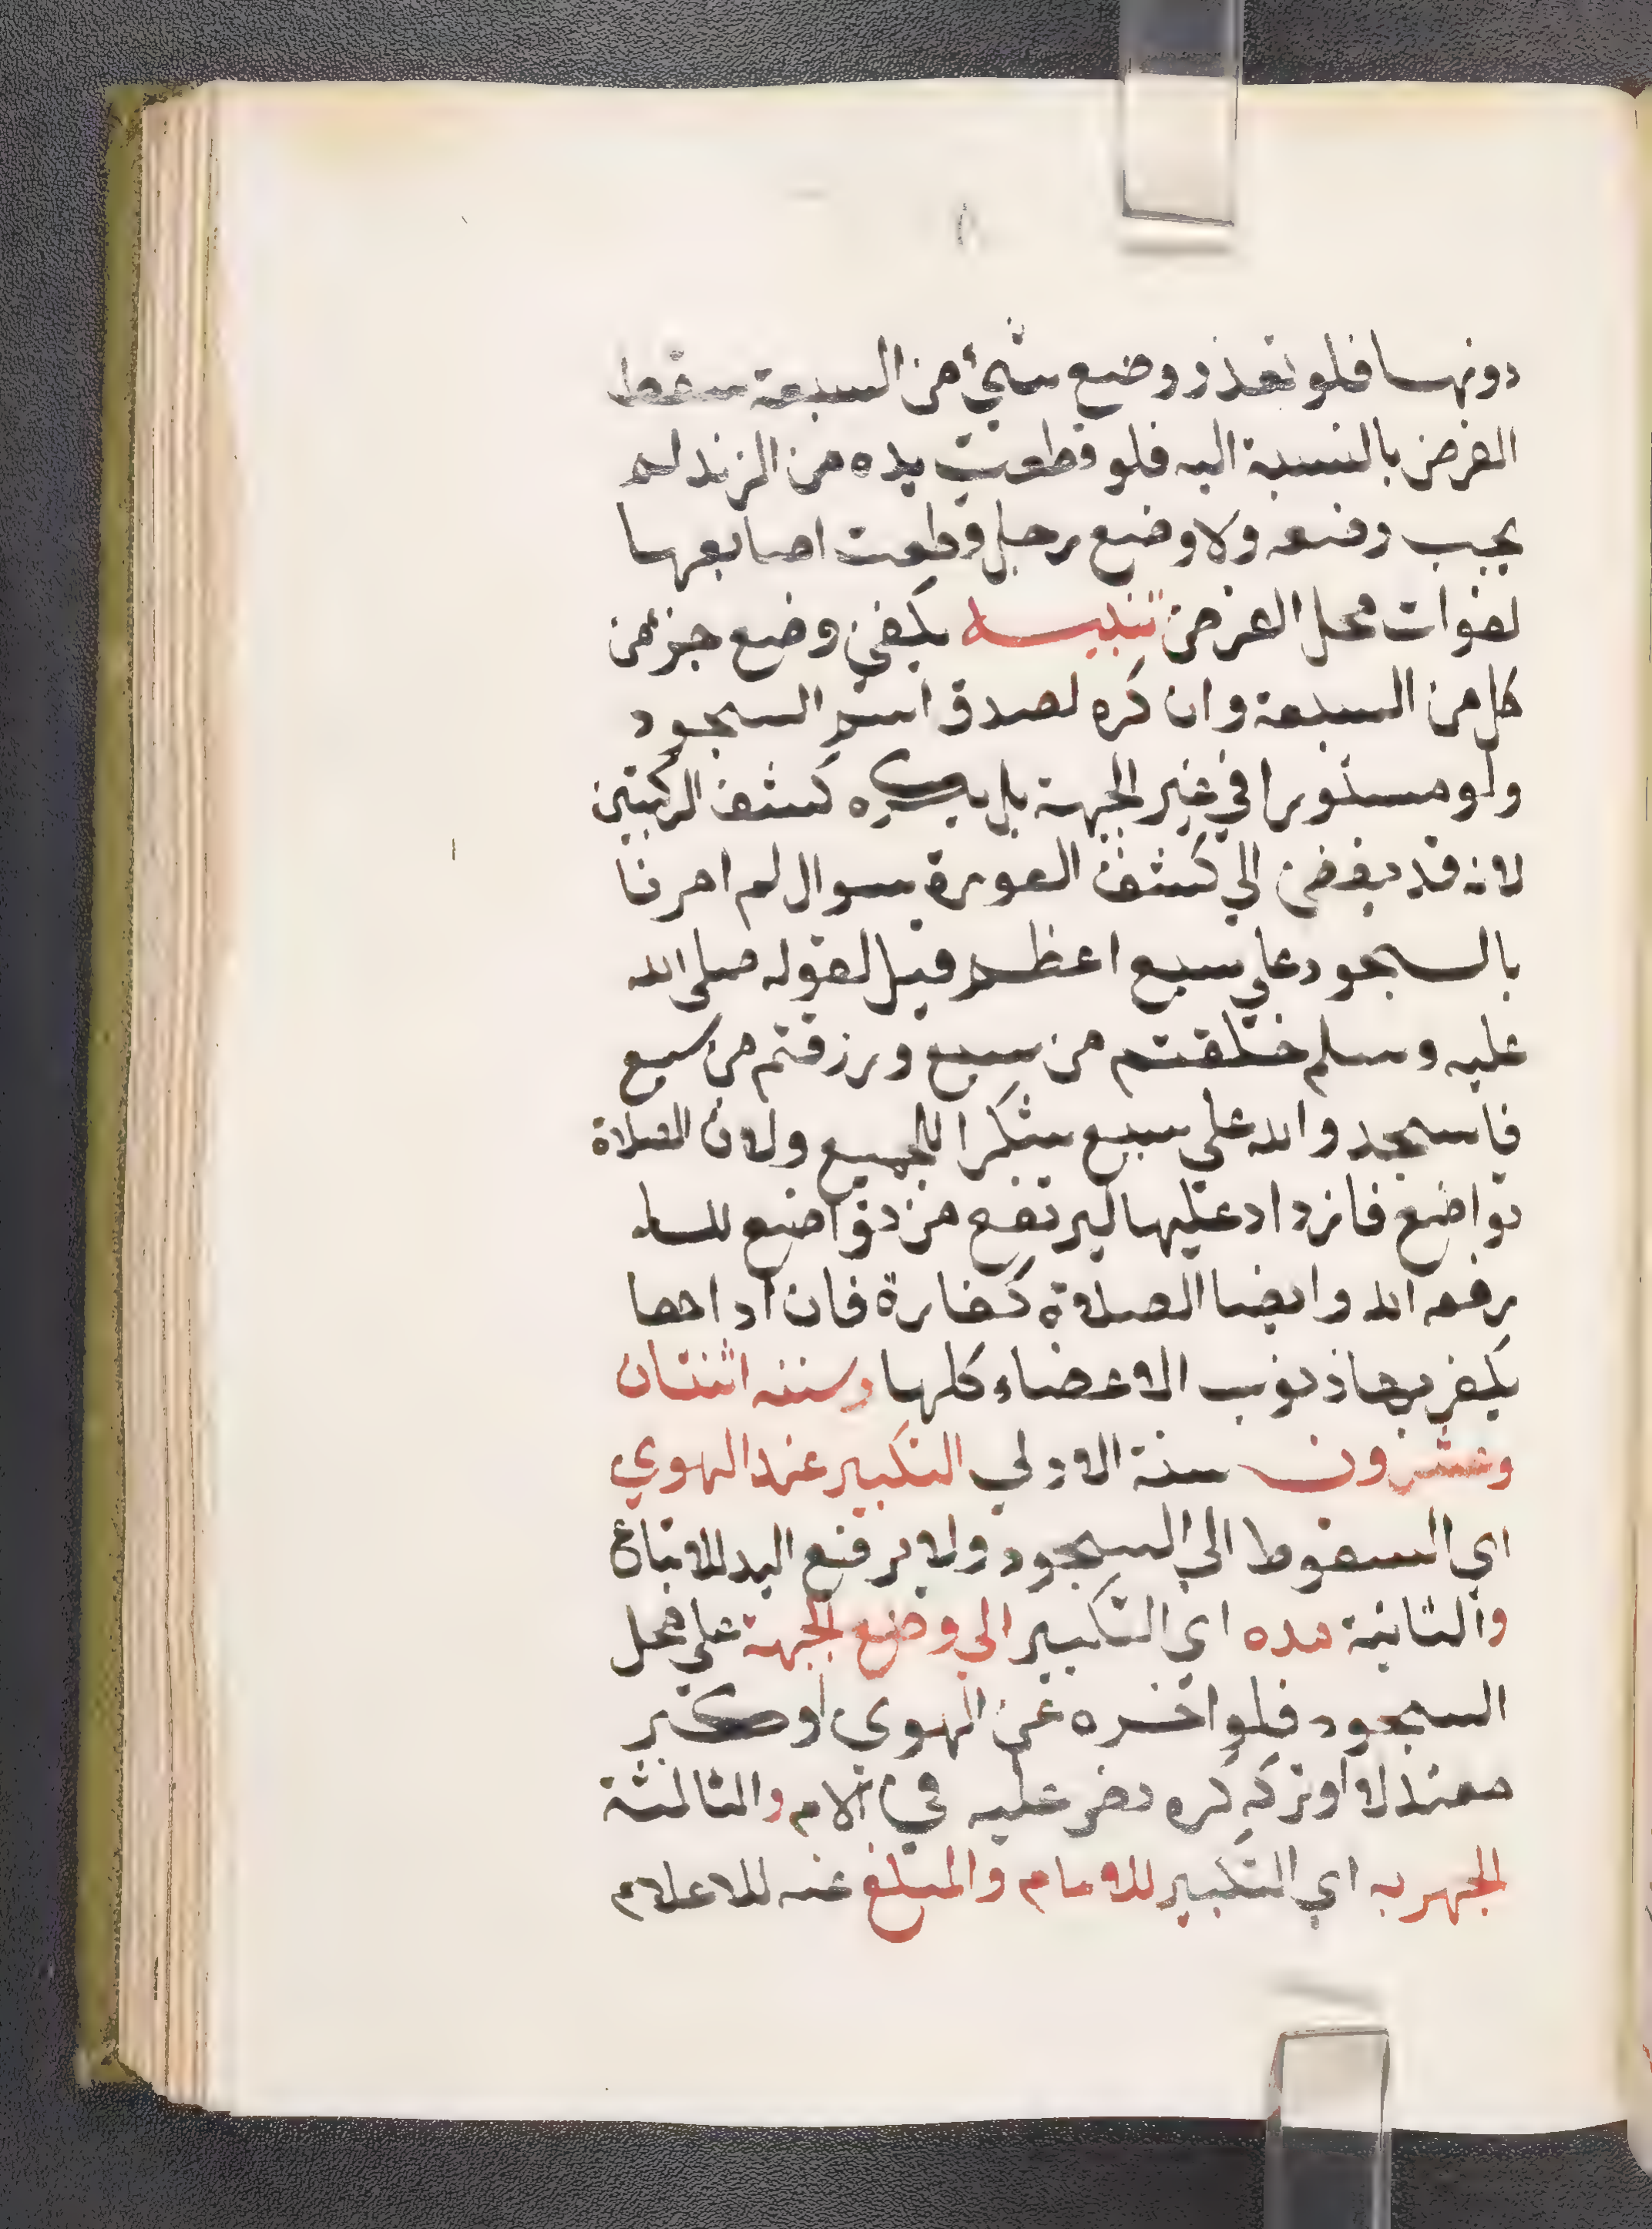 دونها فلو تعذر وضع شيء من السبعة سقط
الفرض بالنسبة اليه فلو قطعت يده من الزند لم
يجب رفعه ولا وضع رجل قطعت اصابعها
لفوات محل الفرض تنبيه يكفي وضع جزء من
كل من السبعة وان كره لصدق اسم السجود
ولو مستورا في غير الجبهة بل يكره كشف الركبتين
لانه قد يفضي الي كشف العورة سوال لم امرنا
بالسجود علي سبع اعظم قيل لقوله صلى الله
عليه وسلم خلقتم من سبع ورزقتم من سبع
فاسجدوا لله علي سبع شكرا للجميع ولان الصلاة
تواضع فازداد عليها ليرتفع من تواضع لله
رفعه الله وايضا الصلاة كفارة فان اداها
يكفر بها ذنوب الاعضاء كلها وسننه اثنتان
وعشرون سنة الاولي التكبير عند الهوي
اي السقوط الي السجود ولا يرفع اليد للاتباع
والثانية مده اي التكبير الي وضع الجبهة علي محل
السجود فلو اخره عن الهوي او كبر
معتدلا او تركه كره نص عليه في الام والثالثة
الجهر به اي التكبير للامام والمبلغ عنه للاعلام